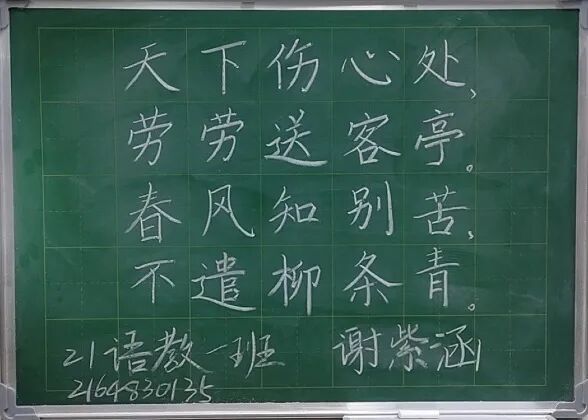 天下伤心处，
劳劳送客亭。
春风知别苦，
不遣柳条青。
21语教一班 谢紫涵
2164830135